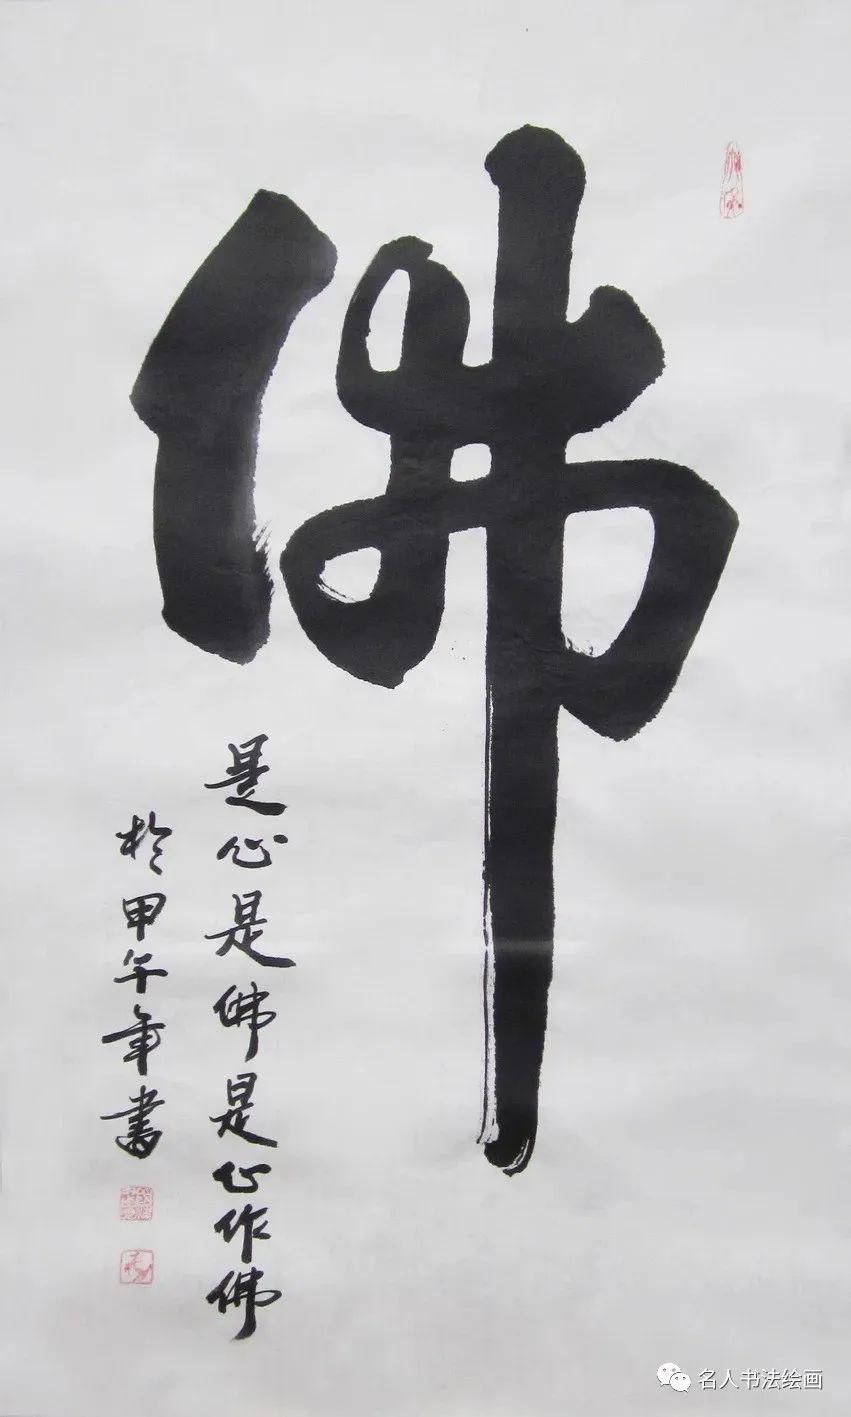 佛
是心是佛是心作佛
於甲午年書
名人书法绘画